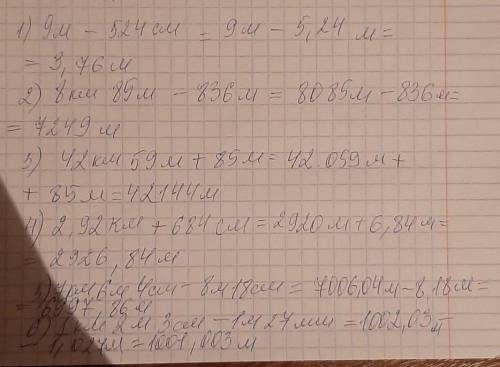 1) 9м - 524 см = 9м - 5,24 м =
= 3,76 м
2) 8 км 85м - 836 м = 8085м - 836 м =
= 7249 м
3) 42 км 59 м + 85 м = 42 059 м +
+ 85 м = 42144 м
4) 2,92 км + 684 см = 2920 м + 6,84 м =
= 2926,84 м
5) 7км 6м 4см - 8м 18см = 7006,04м - 8,18м =
= 6997,86м
6) 1км 2м 3см - 1м 27мм = 1002,03м -
1,027м = 1001,003м